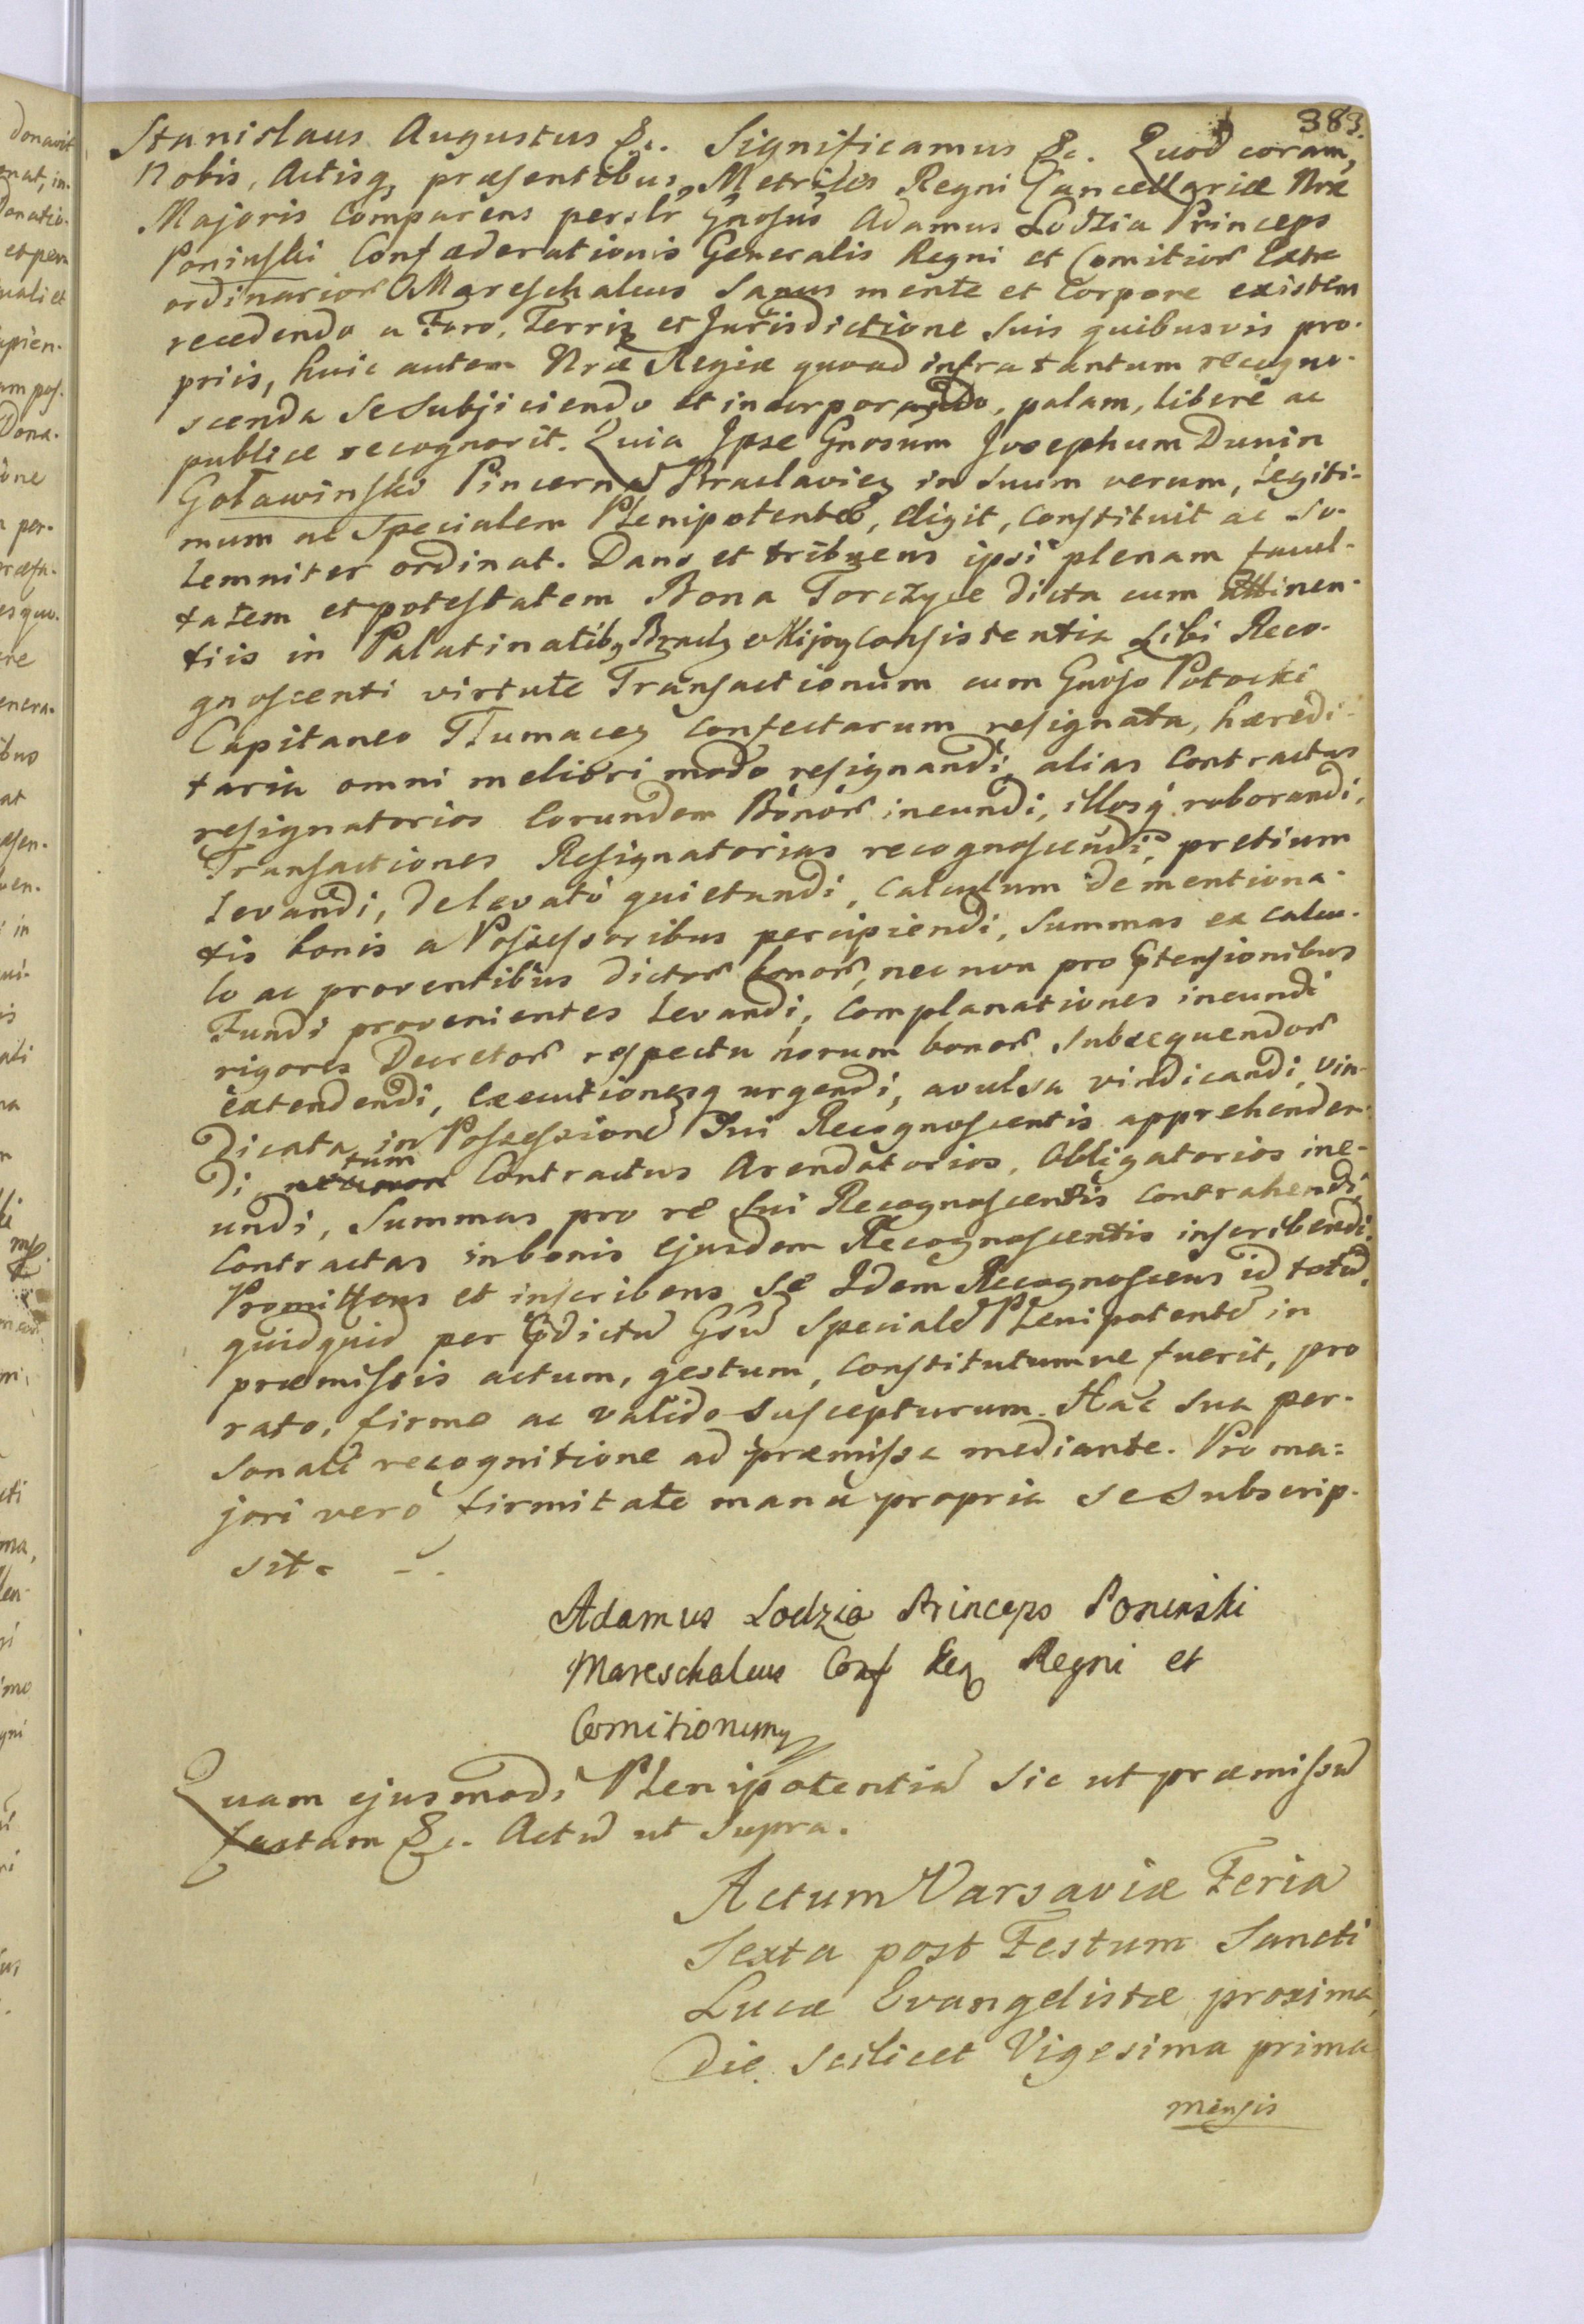 383.
Stanislaus Augustus &c. Significamus &c. Quod coram,
Nobis, Actisq, præsentibus, Metrices Regni Cancellariæ Nræ
Majoris Comparens perslr Gnosus Adamus Lodzia Princeps
Poninski Confæderationis Generalis Regni et Comitior Extra
ordinarior Mareschalcus Sanus mente et Corpore existens
recedendo a Foro, Terris et Jurisdictione suis quibusvis pro-
priis, huic autem Nræ Regiæ quoad infra tantum recogno-
scenda Se subjiciendo et incorporando, palam, liberè ac
publice recognovit. Quia Ipse Gnosum Josephum Dunin
Goławinski Pincernā Braclavieq in Suum verum, Legiti-
mum ac Specialem Plenipotentē, eligit, constituit ac So-
lemniter ordinat. Dans et tribuens ipsi plenam facul-
tatem et potestatem Bona Torczyce dicta cum Attinen-
tiis in Palatinatibq Braclq et Kijoq Consistentia Sibi Reco-
gnoscenti virtute Transactionum cum Gnoso Potocki
Capitaneo Tlumaceq Confectarum resignata, hæredi-
taria omni meliori modo resignandi, alias Contractus
resignatorios Eorundem Bonor ineundi, illosq roborandi,
Transactiones Resignatorias recognoscendi, pretium
Levandi, de levato quietandi, Calculum de mentiona-
tis bonis a Possessoribus percipiendi, Summas ex Calcu-
lo ac proventibus dictor bonor, nec non pro Ptensionibus
Fundi provenientes Levandi, Complanationes ineundi
rigores Decretor respectu horum bonor Subsequendor
extendendi, Executionesq urgendi, avulsa vindicandi, Vin-
dicata in Possessionē Sui Recognoscentis apprehenden-
di tum Contractus Arendatorios, Obligatorios ine-
undi, Summas pro re Sui Recognoscentis Contrahendi,
Contractas in bonis ejusdem Recognoscentis inscribendi.
Promittens et inscribens Se Idem Recognoscens id totū
quidquid per Pdictū Gsū Specialē Plenipotentē in
præmissis actum, gestum, Constitutumve fuerit, pro
rato, firmo ac valido Suscepturum. Hac Sua per-
sonali recognitione ad præmissa mediante. Pro ma-
jori verò firmitate manu propria se subscrip-
sit. - -
Adamus Lodzia Princeps Poninski
Mareschalcus Conf Regni et
Comitiorum
Quam ejusmodi Plenipotentiā Sic ut præmissū
factam &c. Actū ut Supra.
Actum Varsaviæ Feria
Sexta post Festum Sancti
Lucæ Evangelistæ proxima,
Die Scilicet Vigesima prima
Mensis